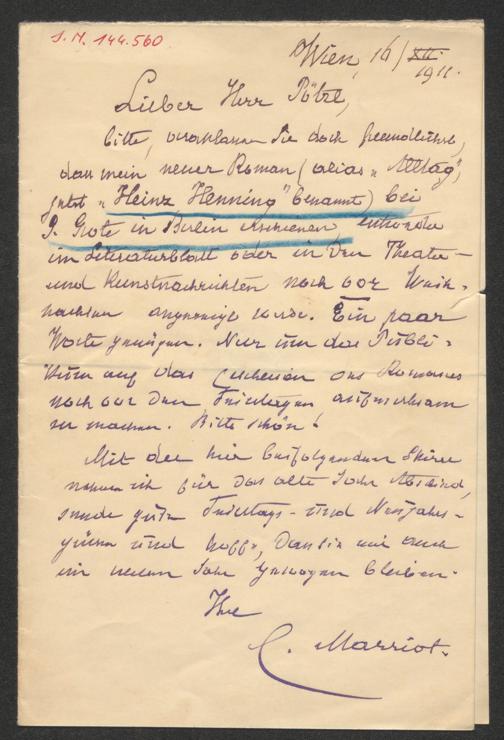 I. N. 144.560
Wien, 16/XII. 1911.
Lieber Herr Pötzl,
bitte, veranlassen Sie doch freundlichst,
dass mein neuer Roman (alias „Alltag",
jetzt „Heinz Henning" benannt) bei
G. Grote in Berlin erschienen, entweder
im Literaturblatt oder in den Theater-
und Kunstnachrichten noch vor Weih-
nachten angezeigt werde. Ein paar
Worte genügen. Nur um das Publi-
kum auf das Erscheinen des Romanes
noch vor den Feiertagen aufmerksam
zu machen. Bitte schön!
Mit der hier beifolgenden Skizze
nehme ich für das alte Jahr Abschied,
sende gute Feiertags- und Neujahrs-
grüsse und hoffe, dass Sie mir auch
im neuen Jahr gewogen bleiben.
Ihre
E. Marriot.